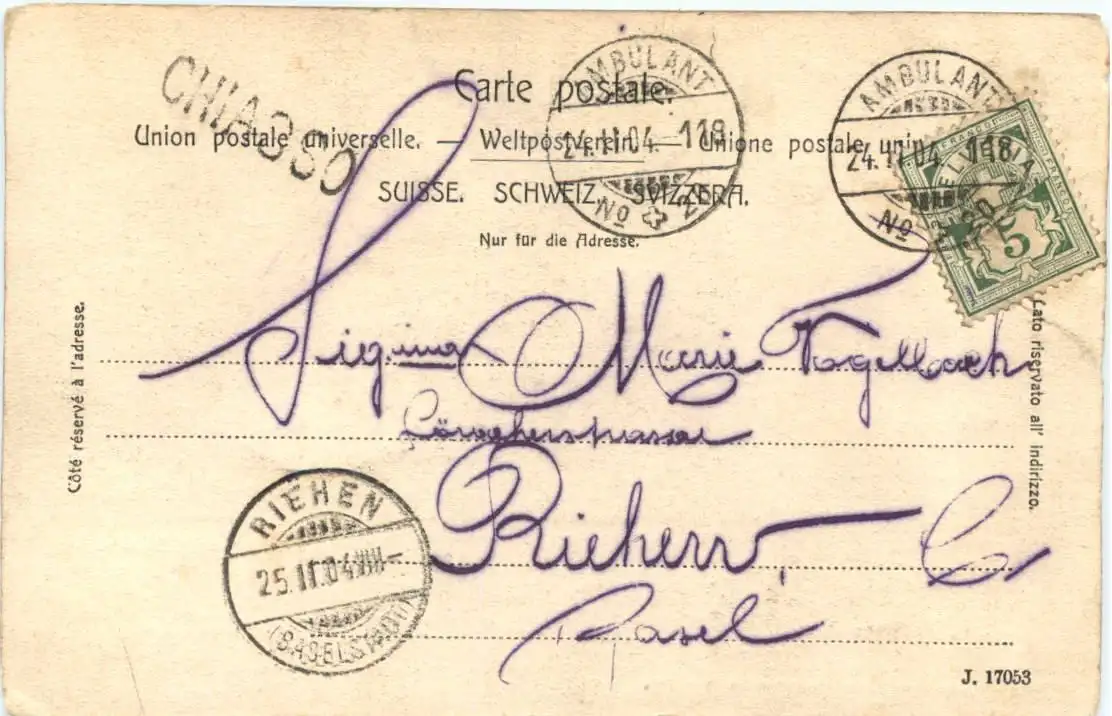 CHIASSO
Carte postale.
Union postale universelle. — Weltpostverein. — Unione postale
SUISSE. SCHWEIZ. SVIZZERA.
Nur für die Adresse.
AMBULANT
24.II.04. 118
No
AMBULANT
24.II.04 118
No
HELVETIA
5
Côté réservé à l'adresse.
Lato riservato all' indirizzo.
Sigina Marie Vogelbach
Lörracherstrasse
Riehen
Basel
RIEHEN
25.II.04.VIII-
(BASELSTADT)
J. 17053